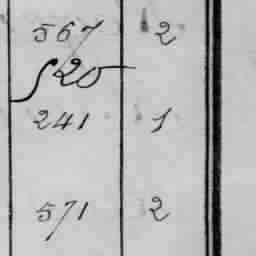 567 2
520
241 1
571 2